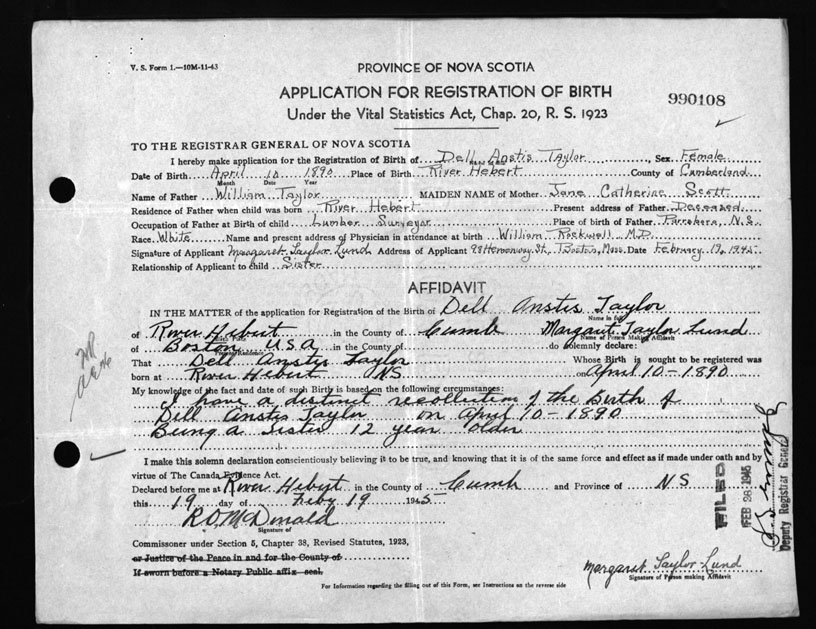 V. S. Form 1.—10M-11-43
PROVINCE OF NOVA SCOTIA
APPLICATION FOR REGISTRATION OF BIRTH
990108
Under the Vital Statistics Act, Chap. 20, R. S. 1923
TO THE REGISTRAR GENERAL OF NOVA SCOTIA
I hereby make application for the Registration of Birth of Dell Anstis Taylor, Sex Female
Date of Birth April 10 1890 Place of Birth River Hebert County of Cumberland
Month Date Year
Name of Father William Taylor MAIDEN NAME of Mother Jane Catherine Scott
Residence of Father when child was born River Hebert Present address of Father Deceased
Occupation of Father at Birth of child Lumber Surveyor Place of birth of Father Parrsboro, N.S.
Race White Name and present address of Physician in attendance at birth William Rockwell M.D.
Signature of Applicant Margaret Taylor Lund Address of Applicant 98 Hemenway St., Boston, Mass. Date February 19, 1945
Relationship of Applicant to child Sister
AFFIDAVIT
IN THE MATTER of the application for Registration of the Birth of Dell Anstis Taylor
Name in full
of River Hebert in the County of Cumb Margaret Taylor Lund
Name of Person Making Affidavit
of Boston U.S.A. in the County of do solemnly declare:
That Dell Anstis Taylor Whose Birth is sought to be registered was
born at River Hebert NS on April 10-1890
My knowledge of the fact and date of such Birth is based on the following circumstances:
I have a distinct recollection of the Birth of
Dell Anstis Taylor on April 10-1890
Being a Sister 12 year older
I make this solemn declaration conscientiously believing it to be true, and knowing that it is of the same force and effect as if made under oath and by
virtue of The Canada Evidence Act.
Declared before me at River Hebert in the County of Cumb and Province of NS
this 19 day of Feby 19 1945
R.O. McDonald
Signature of
Commissioner under Section 5, Chapter 38, Revised Statutes, 1923,
or Justice of the Peace in and for the County of
If sworn before a Notary Public affix seal.
Margaret Taylor Lund
Signature of Person making Affidavit
For Information regarding the filling out of this Form, see Instructions on the reverse side
FILED
FEB 28 1945
Deputy Registrar General